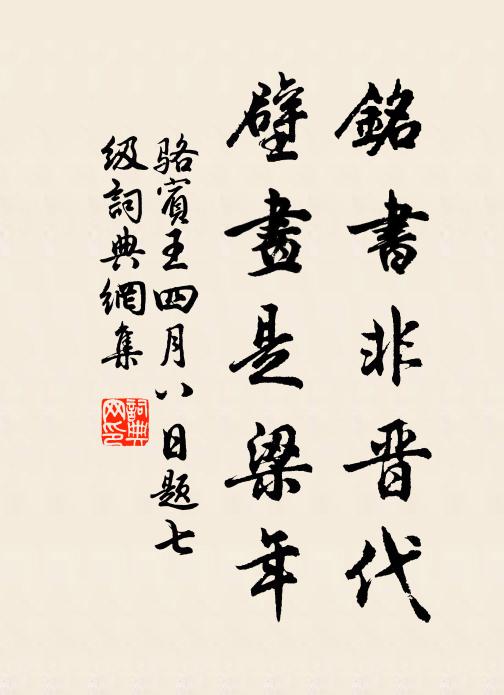 銘書非晋代
壁畫是梁年
骆賓王四月八日题七
级詞典網集
詞典網印